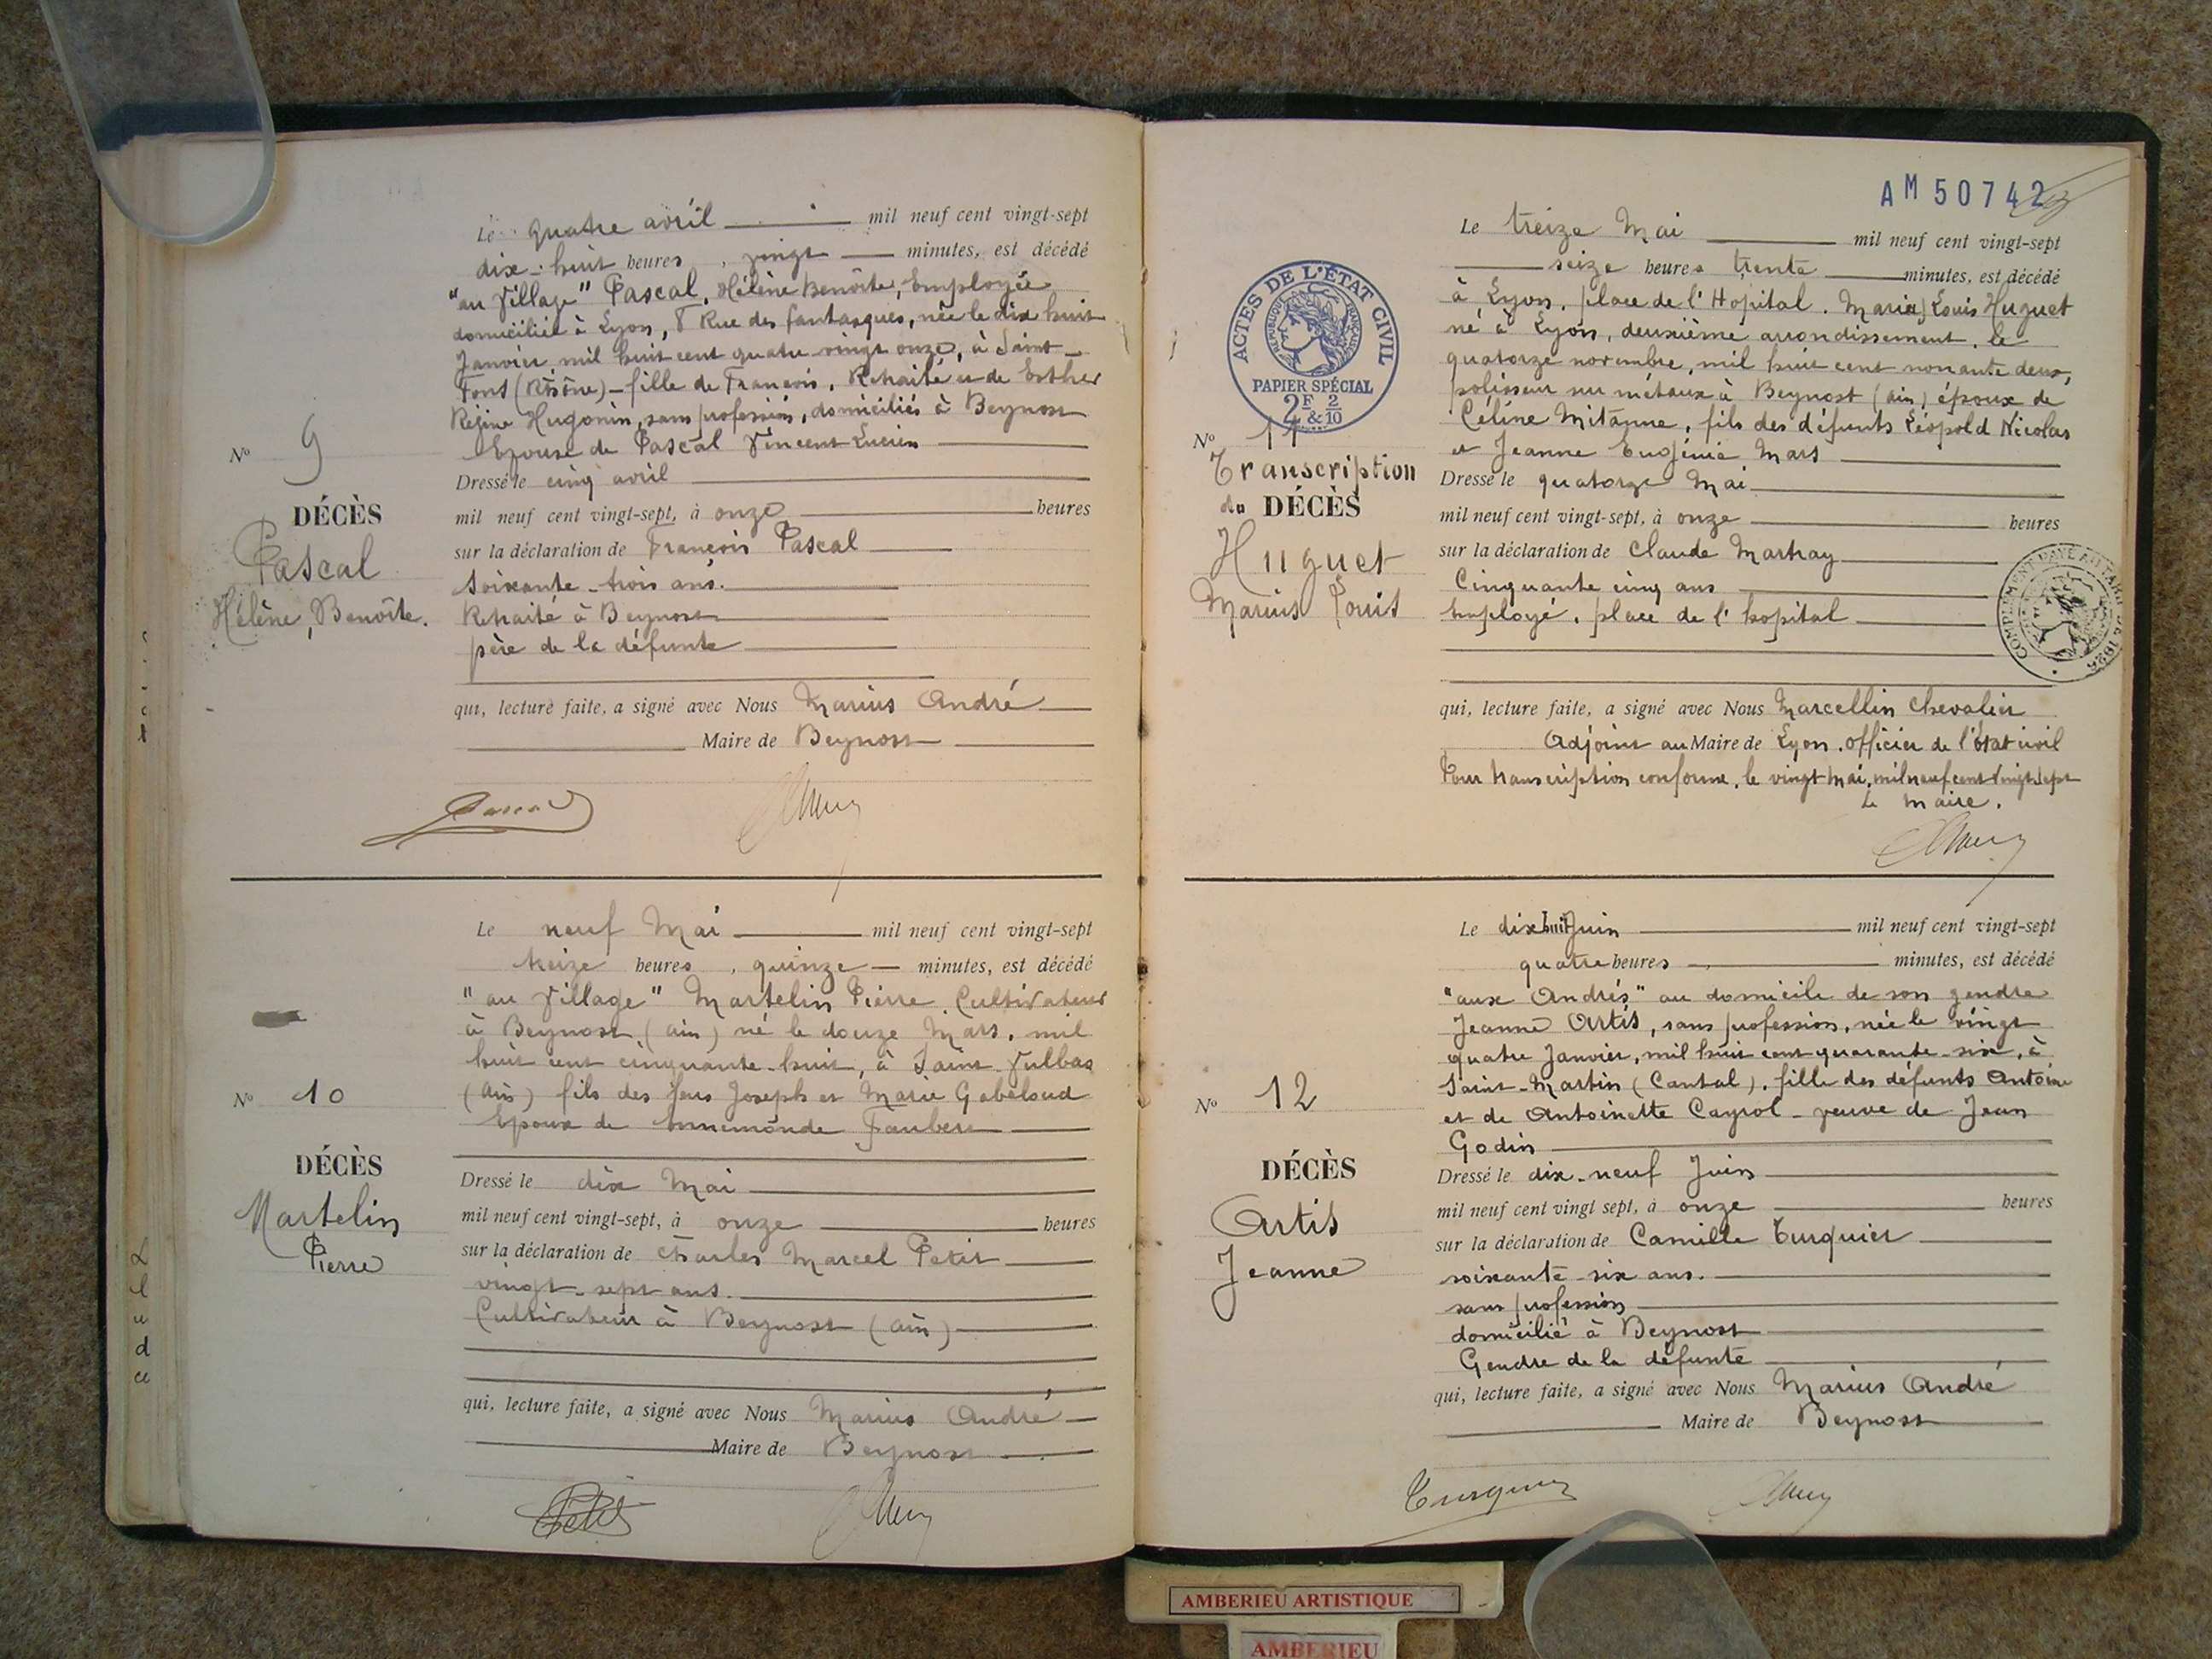 Le quatre avril mil neuf cent vingt-sept
dix-huit heures, vingt minutes, est décédé
"au Village" Pascal, Hélène Benoîte, Employée
domiciliée à Lyon, 8 Rue des fantasques, née le dix huit
Janvier, mil huit cent quatre vingt onze, à Saint-
Fons (Rhône) - fille de François, Retraité et de Esther
Régine Hugonin, sans profession, domiciliés à Beynost
Epouse de Pascal Vincent Lucien
Dressé le cinq avril
mil neuf cent vingt-sept, à onze heures
sur la déclaration de François Pascal
soixante-trois ans.
Retraité à Beynost
père de la défunte
qui, lecture faite, a signé avec Nous Marius André
Maire de Beynost
Nº 9
DÉCÈS
Pascal
Hélène, Benoîte.
Le neuf Mai mil neuf cent vingt-sept
treize heures, quinze minutes, est décédé
"au Village" Martelin Pierre, Cultivateur
à Beynost (ain) né le douze Mars, mil
huit cent cinquante-huit, à Saint-Vulbas
(ain) fils des feus Joseph et Marie Gabeloud
Epoux de Ennemonde Faubert
Dressé le dix Mai
mil neuf cent vingt-sept, à onze heures
sur la déclaration de Charles Marcel Petit
vingt-sept ans.
Cultivateur à Beynost (ain)
qui, lecture faite, a signé avec Nous Marius André
Maire de Beynost
Petit
Nº 10
DÉCÈS
Martelin
Pierre
AM 50742
Le treize Mai mil neuf cent vingt-sept
seize heures trente minutes, est décédé
à Lyon, place de l'Hopital, Marius Louis Huguet
né à Lyon, deuxième arrondissement, le
quatorze novembre, mil huit cent nonante deux,
polisseur sur métaux à Beynost (ain) époux de
Céline Mitanne, fils des défunts Léopold Nicolas
et Jeanne Eugénie Mars
Dressé le quatorze Mai
mil neuf cent vingt-sept, à onze heures
sur la déclaration de Claude Martray
Cinquante cinq ans
Employé, place de l'hopital
qui, lecture faite, a signé avec Nous Marcellin Chevalier
Adjoint au Maire de Lyon, officier de l'état civil
Pour transcription conforme, le vingt Mai, mil neuf cent vingt sept
Le Maire.
ACTES DE L'ÉTAT CIVIL
RÉPUBLIQUE FRANÇAISE
PAPIER SPÉCIAL
2F & 2/10
Nº 11
Transcription
du DÉCÈS
Huguet
Marius Louis
Le dix huit Juin mil neuf cent vingt-sept
quatre heures minutes, est décédé
"aux Andrés" au domicile de son gendre
Jeanne Artis, sans profession, née le vingt
quatre Janvier, mil huit cent quarante-six, à
Saint-Martin (Cantal), fille des défunts Antoine
et de Antoinette Cayrol - veuve de Jean
Godin
Dressé le dix-neuf Juin
mil neuf cent vingt sept, à onze heures
sur la déclaration de Camille Turquier
soixante-six ans.
sans profession
domicilié à Beynost
Gendre de la défunte
qui, lecture faite, a signé avec Nous Marius André
Maire de Beynost
Nº 12
DÉCÈS
Artis
Jeanne
AMBERIEU ARTISTIQUE
AMBERIEU